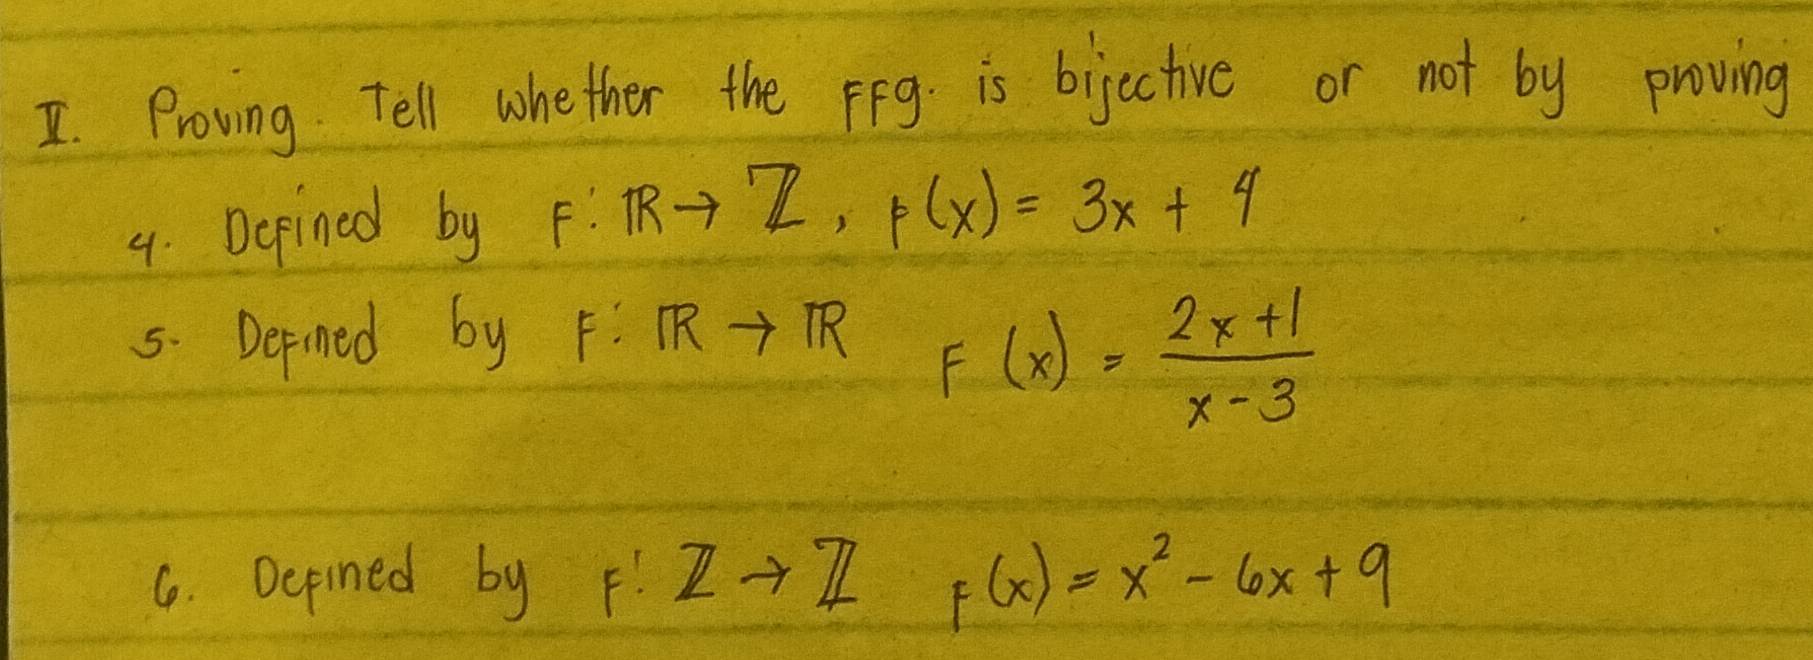 II. Proving. Tell whether the FFg. is bijective or not by proving
4. Defined by F: ℝ → ℤ, F(x) = 3x + 4
5. Defined by F: ℝ → ℝ F(x) = (2x+1)/(x-3)
6. Defined by F: ℤ → ℤ F(x) = x² - 6x + 9